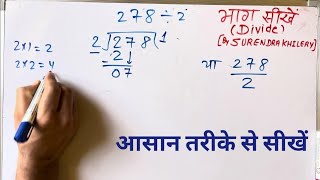 278 ÷ 2
भाग सीखें
(Divide)
[By SURENDRA KHILERY]
2×1=2
2×2=4
2)278(1
2↓
07
या 278
2
आसान तरीके से सीखें